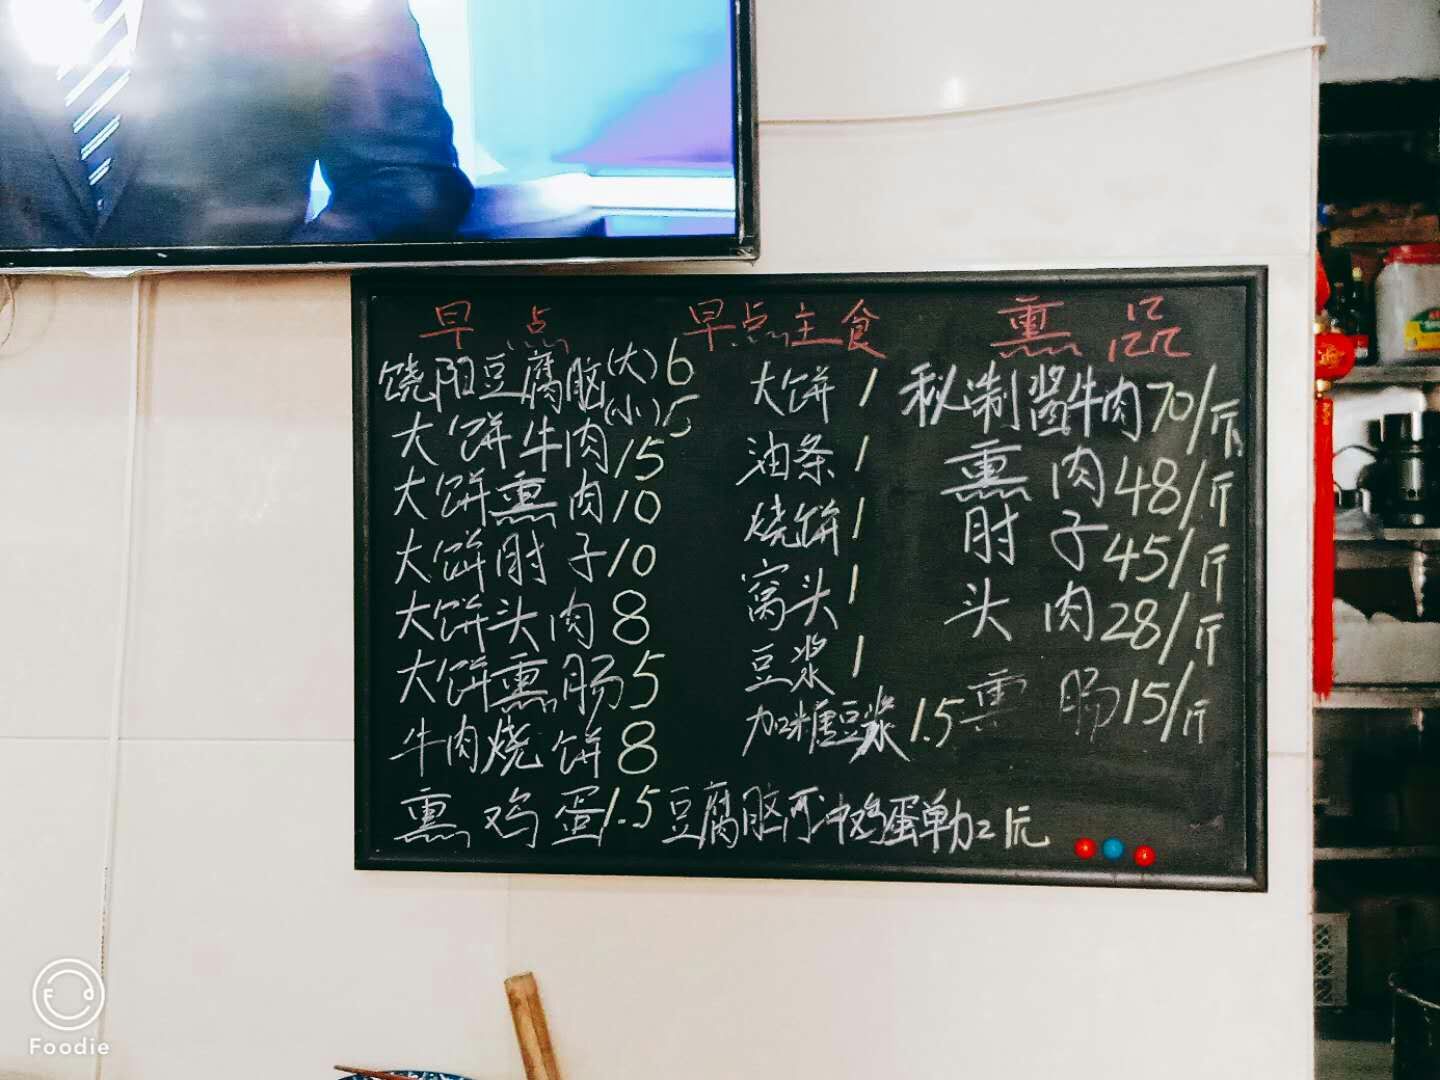 早点
饶阳豆腐脑(大)6
(小)5
大饼牛肉15
大饼熏肉10
大饼肘子10
大饼头肉8
大饼熏肠5
牛肉烧饼8
熏鸡蛋1.5
早点主食
大饼1
油条1
烧饼1
窝头1
豆浆1
加糖豆浆1.5
熏品
秘制酱牛肉70/斤
熏肉48/斤
肘子45/斤
头肉28/斤
熏肠15/斤
豆腐脑可冲鸡蛋单加2元
Foodie